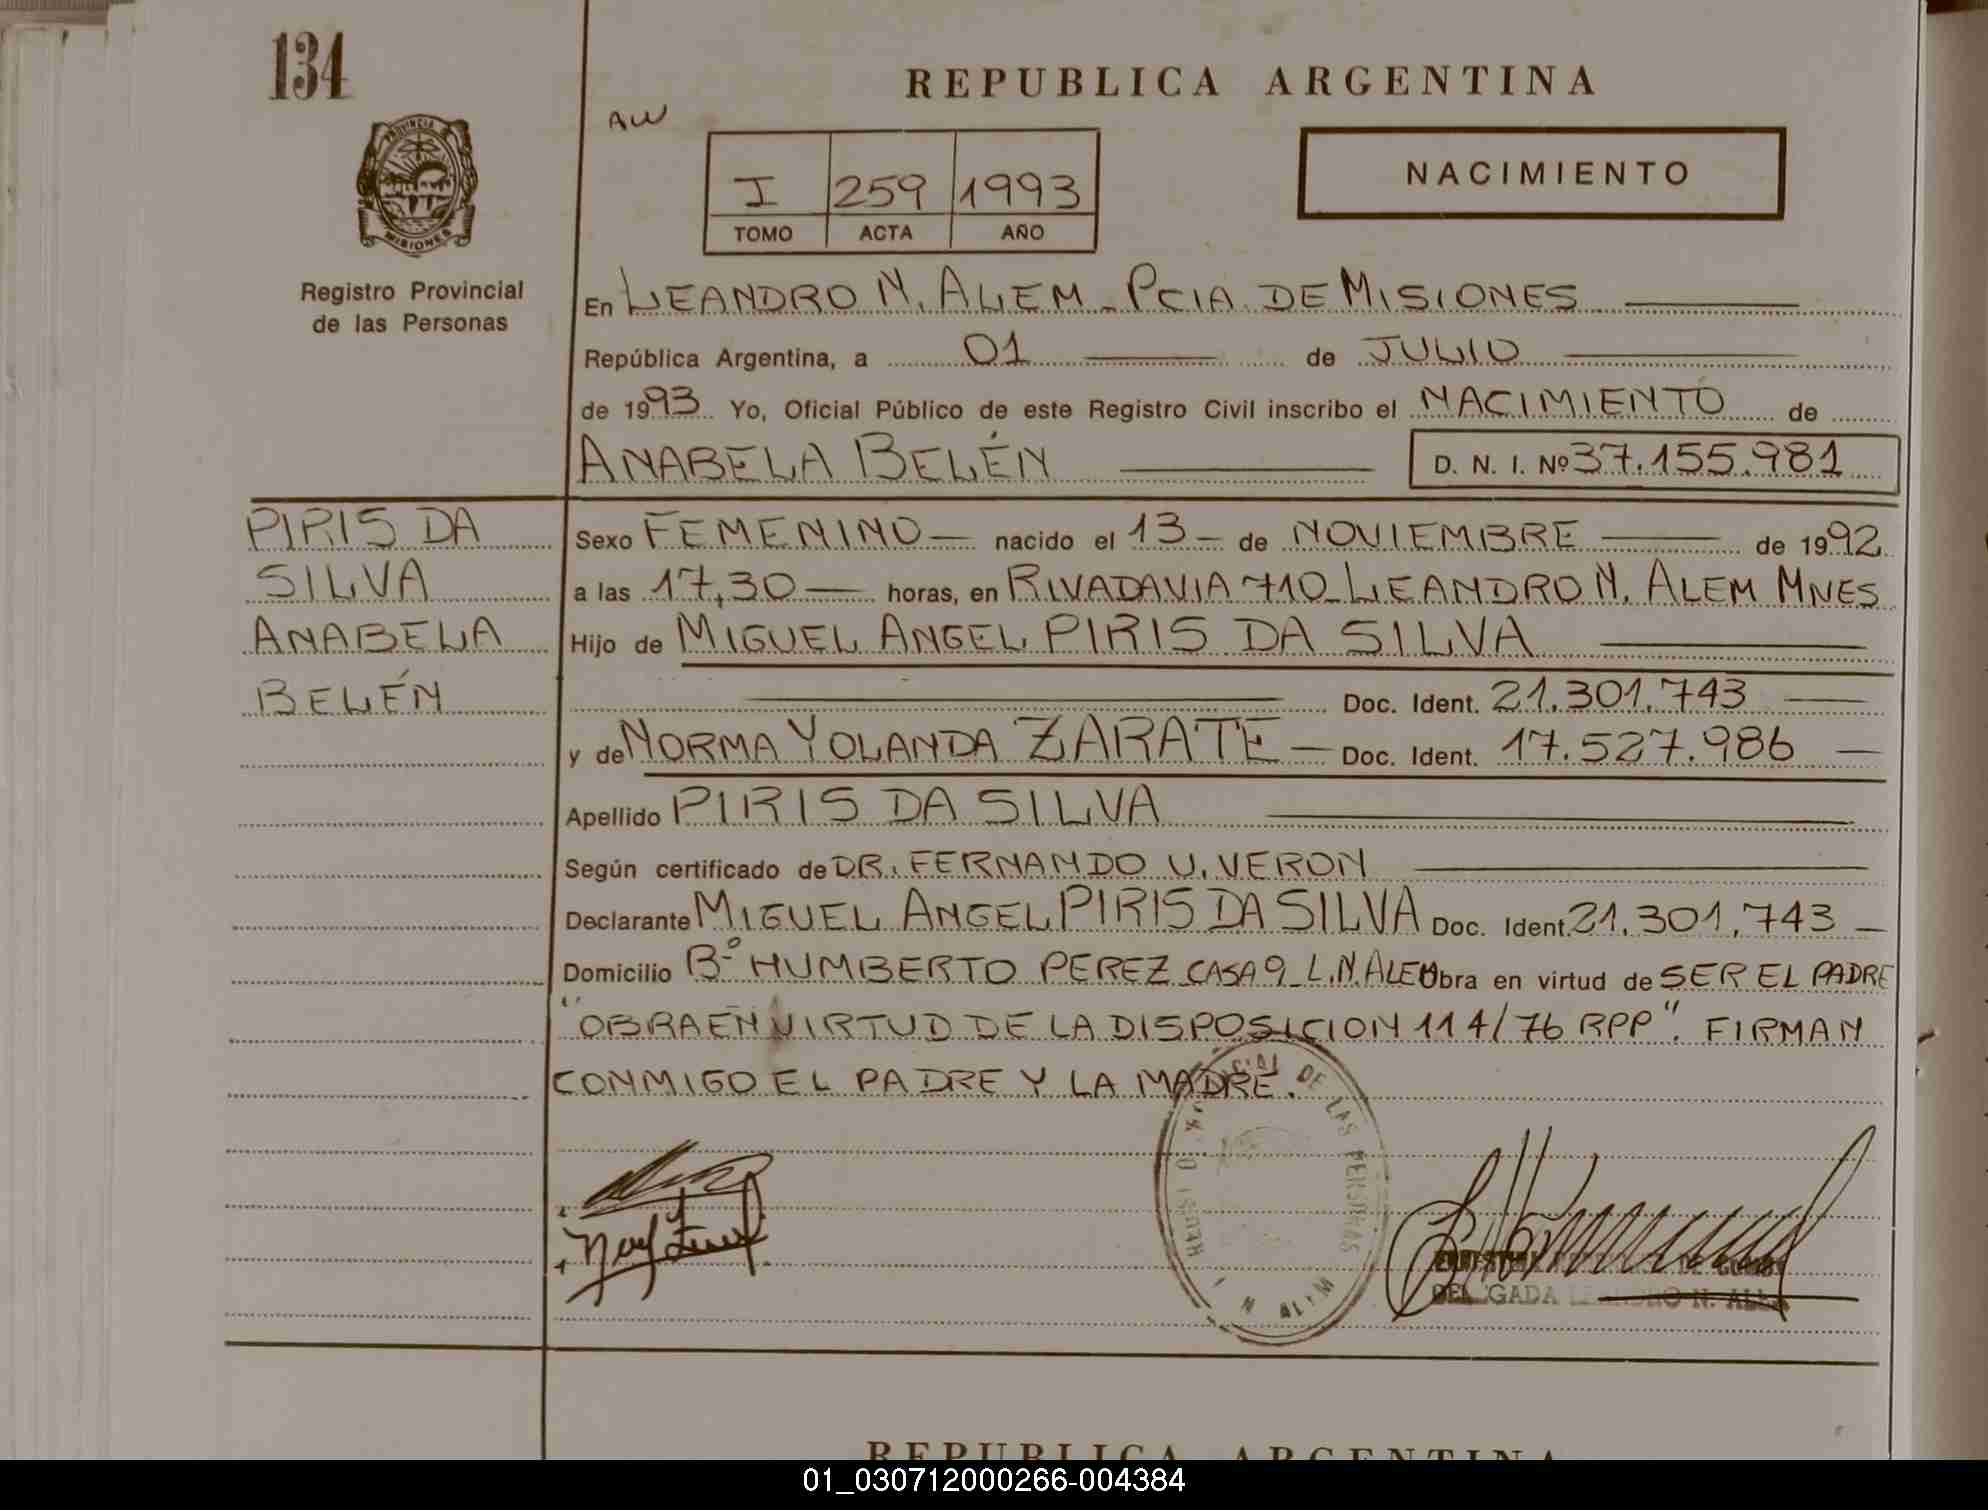 134
REPUBLICA ARGENTINA
AW
PROVINCIA DE
MISIONES
I 259 1993
TOMO ACTA AÑO
NACIMIENTO
Registro Provincial
de las Personas
En LEANDRO N. ALEM - PCIA. DE MISIONES
República Argentina, a 01 de JULIO
de 1993 Yo, Oficial Público de este Registro Civil inscribo el NACIMIENTO de
ANABELA BELÉN D. N. I. Nº 37.155.981
PIRIS DA
SILVA
ANABELA
BELÉN
Sexo FEMENINO - nacido el 13 - de NOVIEMBRE de 1992
a las 17,30 horas, en RIVADAVIA 710 - LEANDRO N. ALEM MNES
Hijo de MIGUEL ANGEL PIRIS DA SILVA
Doc. Ident. 21.301.743
y de NORMA YOLANDA ZARATE - Doc. Ident. 17.527.986
Apellido PIRIS DA SILVA
Según certificado de DR. FERNANDO U. VERON
Declarante MIGUEL ANGEL PIRIS DA SILVA Doc. Ident. 21.301.743
Domicilio Bº HUMBERTO PEREZ CASA 9 - L.N. ALEM Obra en virtud de SER EL PADRE
"OBRA EN VIRTUD DE LA DISPOSICION 114/76 RPP". FIRMAN
CONMIGO EL PADRE Y LA MADRE.
DE LAS PERSONAS
L N ALEM
DELEGADA LEANDRO N. ALEM
REPUBLICA ARGENTINA
01_030712000266-004384